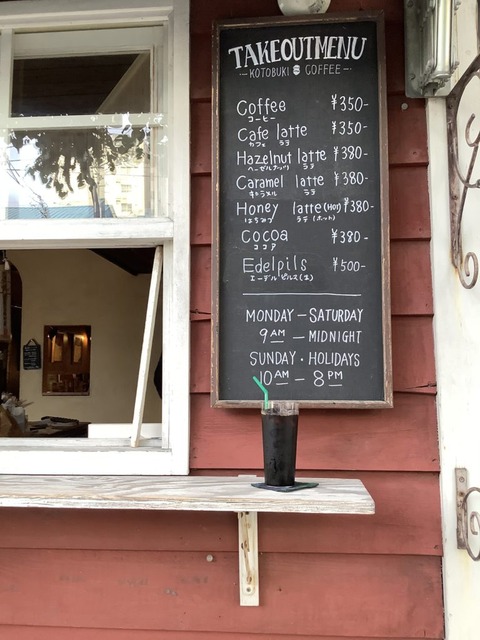 TAKEOUTMENU
KOTOBUKI COFFEE
Coffee ¥350-
コーヒー
Cafe latte ¥350-
カフェ ラテ
Hazelnut latte ¥380-
ヘーゼルナッツ ラテ
Caramel latte ¥380-
キャラメル ラテ
Honey latte (HOT) ¥380-
はちみつ ラテ (ホット)
Cocoa ¥380-
ココア
Edelpils ¥500-
エーデルピルス(生)
MONDAY — SATURDAY
9 AM — MIDNIGHT
SUNDAY · HOLIDAYS
10 AM — 8 PM